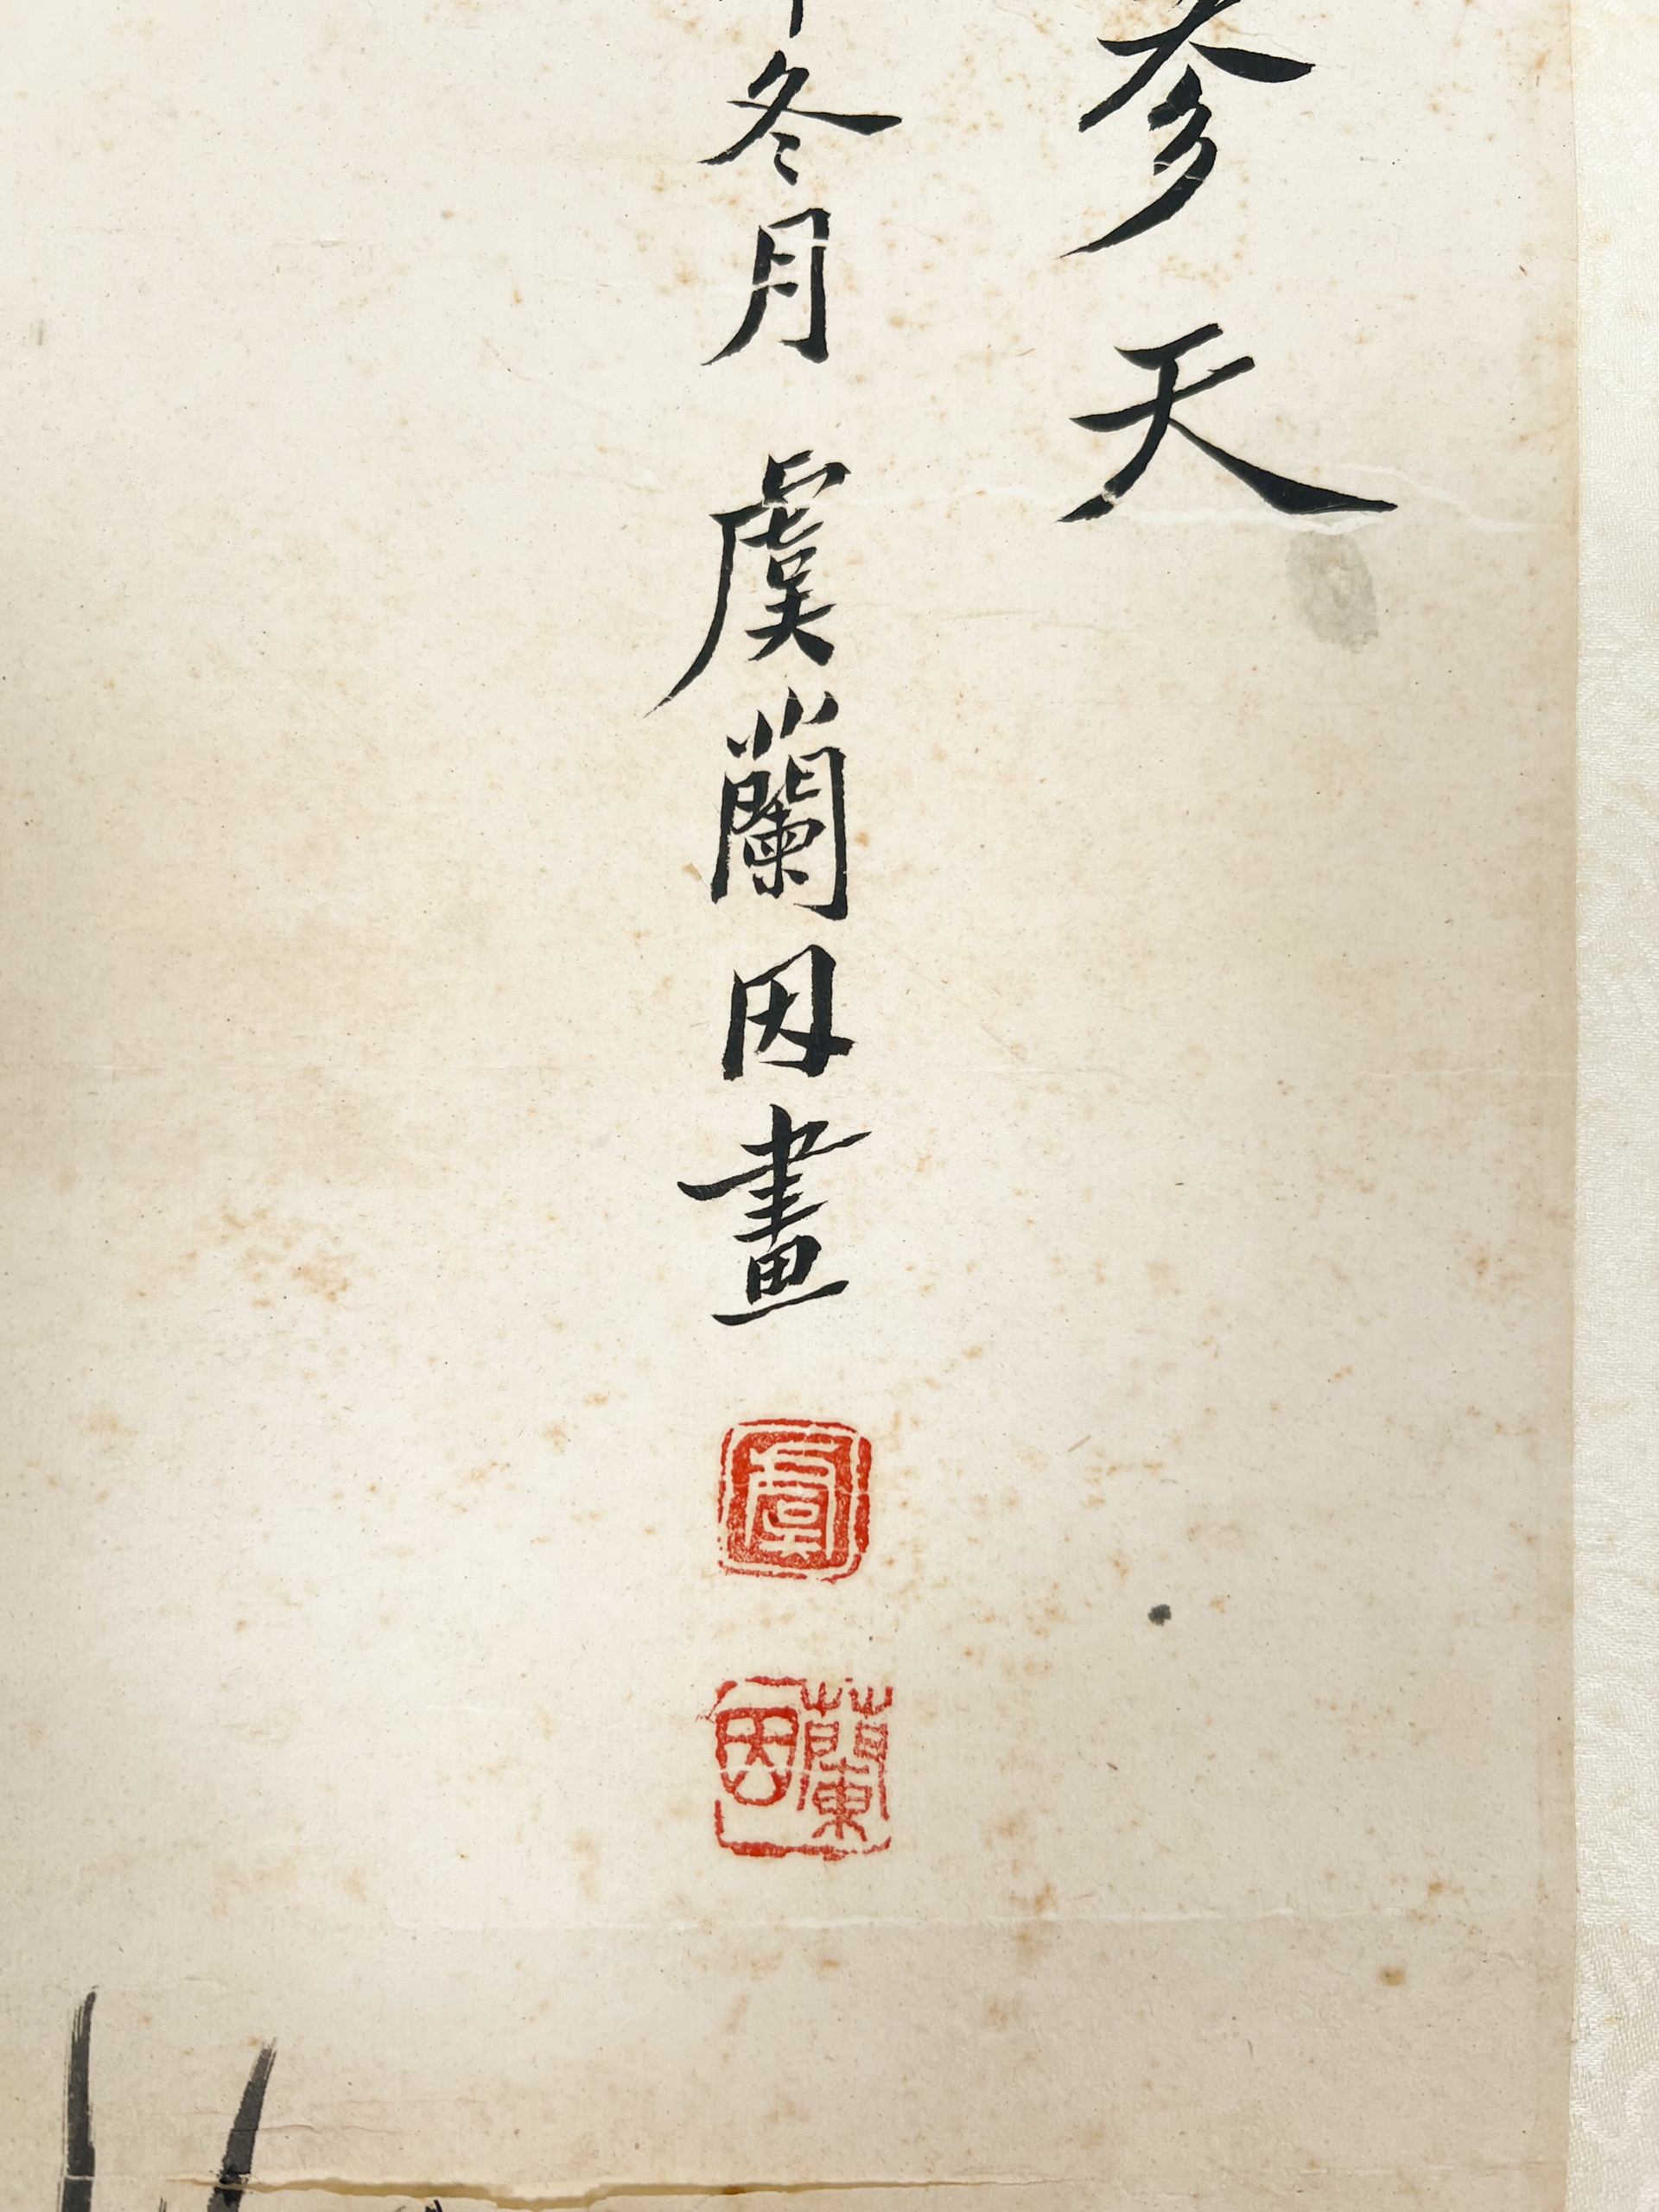 參天
冬月虞蘭因畫
虞
蘭因